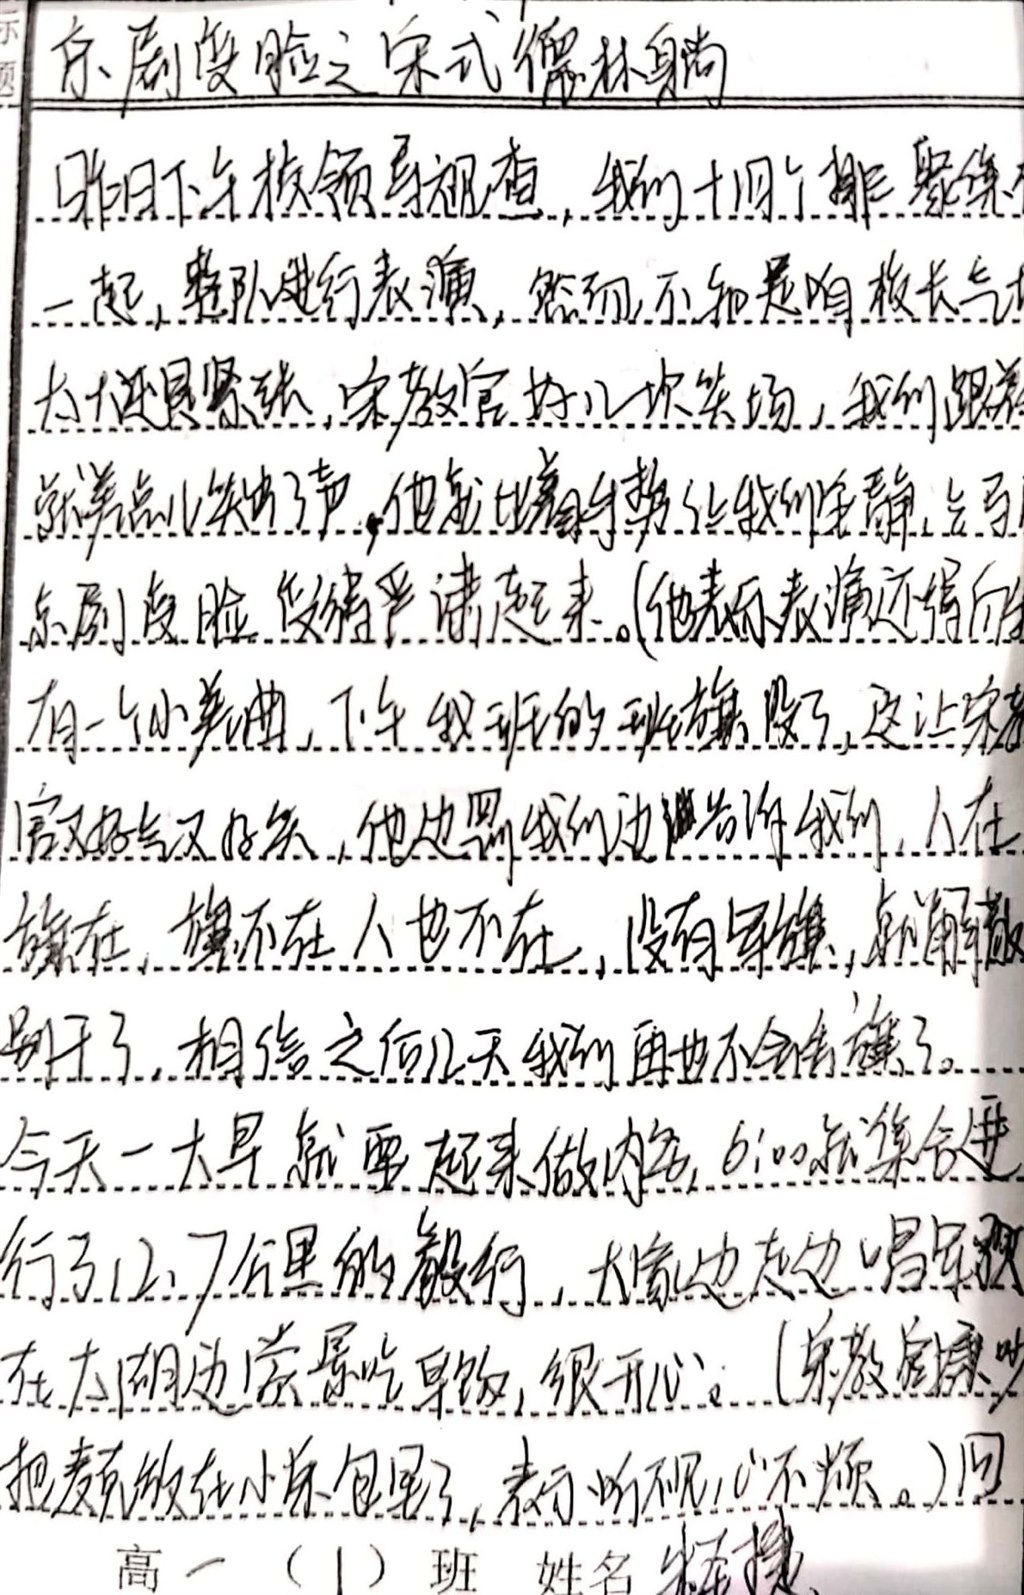 标题
京剧变脸之宋式儒林身尚
昨日下午校领导视查，我们十四个排聚集在
一起，整队进行表演，然而，不知是咱校长气场
太大还是紧张，宋教官好几次笑场，我们跟着
就差点儿笑出了声，他就比着手势让我们安静，立马
京剧变脸变得严肃起来。(他表示表演还得
有一个小差曲，下午我班的班旗没了，这让宋教
官又好气又好笑，他边罚我们边告诉我们，人在
旗在，旗不在人也不在，没有军旗，就解散
别干了，相信之后几天我们再也不会丢旗了。
今天一大早就要起来做内务，6:00就集合进
行了12.7公里的毅行，大家边走边唱军歌
在太湖边赏景吃早饭，很开心。(宋教官嫌吵
把麦克放在小宋包里了，表示听不见心不烦。)回
高一（1）班 姓名